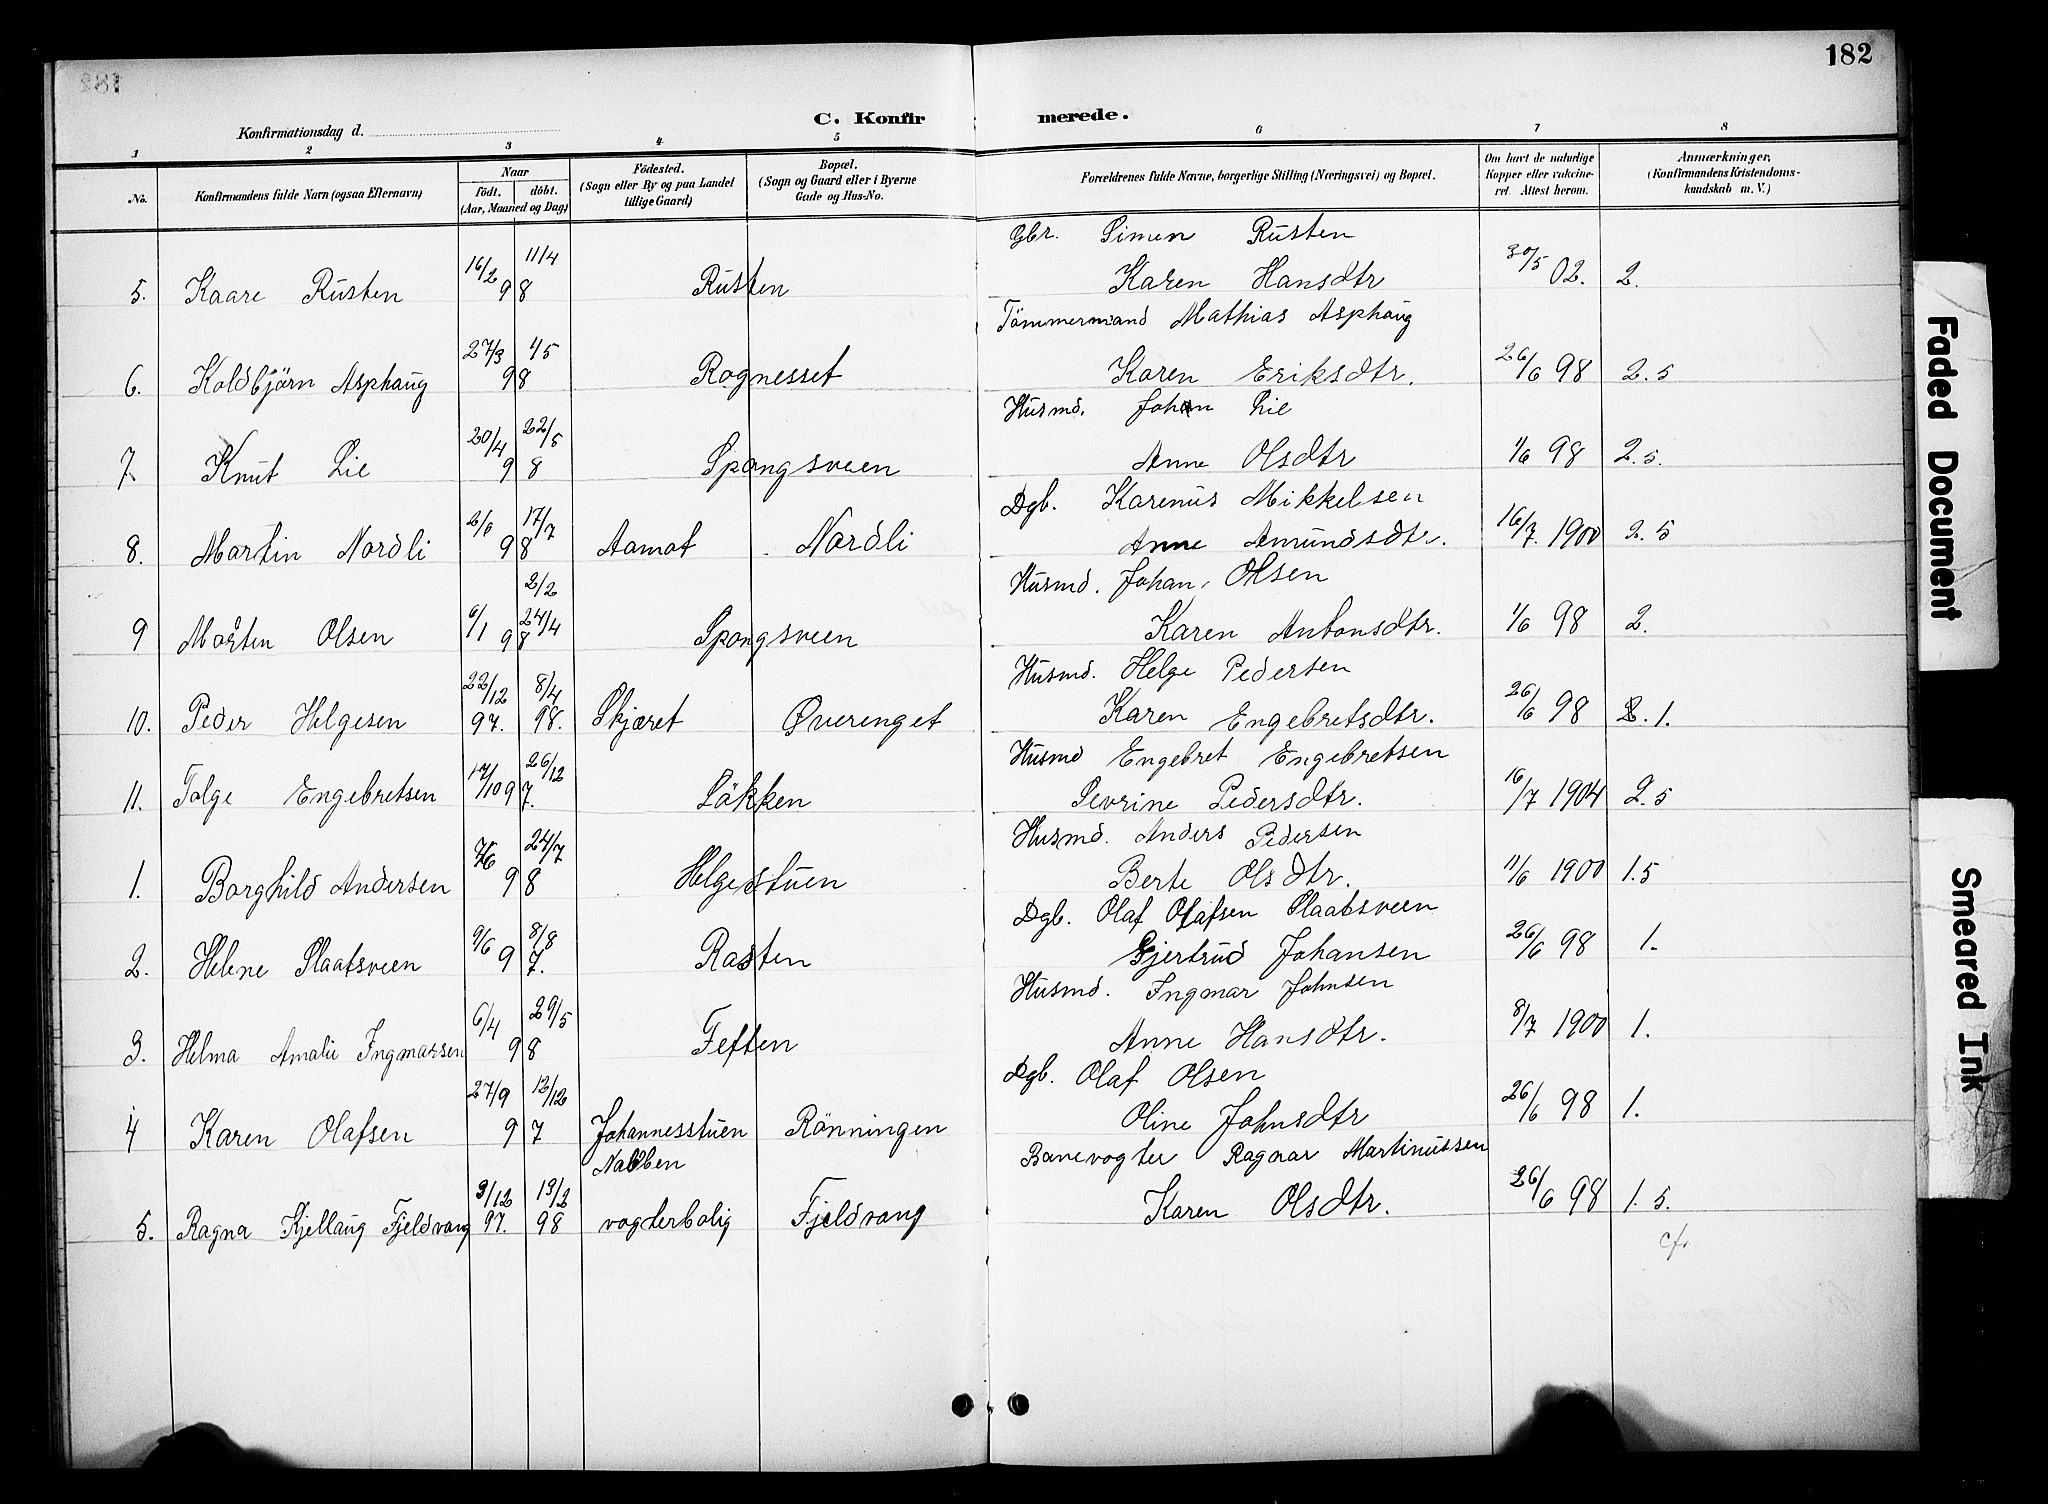 182
C. Konfirmerede.
Konfirmationsdag d.
1 2 3 4 5 6 7 8
No.
Konfirmandens fulde Navn (ogsaa Efternavn)
Naar
födt. döbt.
(Aar, Maaned og Dag)
Födested.
(Sogn eller By og paa Landet
tillige Gaard)
Bopæl.
(Sogn og Gaard eller i Byerne
Gade og Hus-No.
Forældrenes fulde Navne, borgerlige Stilling (Næringsvei) og Bopæl.
Om havt de naturlige
Kopper eller vakcine-
ret. Attest herom.
Anmærkninger,
(Konfirmandens Kristendoms-
kundskab m. V.)
Gbr. Simen Rusten
5. Kaare Rusten 16/2 11/4 98 Rusten Karen Hansdtr 30/5 02. 2.
Tömmermand Mathias Asphaug
6. Koldbjörn Asphaug 27/3 98 Rognesset Karen Eriksdtr. 26/6 98 2.5
Husmd. Johan Lie
7. Knut Lie 20/4 22/5 98 Spangsveen Anne Olsdtr 1/6 98 2.5.
Dgb. Karenus Mikkelsen
8. Martin Nordli 2/6 17/7 98 Aamot Nordli Anne Amundsdtr. 16/7. 1900 2.5
2/2
Husmd. Johan Olsen
9 Morten Olsen 6/1 24/4 98 Spangsveen Karen Antonsdtr. 1/6 98 2.
Husmd. Helge Pedersen
10. Peder Helgesen 22/12 97. 8/4 98. Skjæret Øverenget Karen Engebretsdtr. 26/6 98 1.
Husmd Engebret Engebretsen
11. Tolge Engebretsen 17/10 26/12 97. Lökken Sevrine Pedersdtr. 16/7 1904 2.5
Husmd. Anders Pedersen
1. Borghild Andersen 24/7 98 Helgestuen Berte Olsdtr. 11/6 1900 1.5
Dgb. Olaf Olafsen Slaatsveen
2. Helene Slaatsveen 9/6 8/8 97. Rasten Gjertrud Johansen 26/6 98 1.
Husmd. Ingmar Johnsen
3. Helma Amalie Ingmarsen 6/4 29/5 98 Teften Anne Hansdtr. 8/7 1900 1.
Dgb. Olaf Olsen
4 Karen Olafsen 27/9 12/12 97 Johannesstuen Rönningen Oline Johnsdtr 26/6 98 1.
Nabben
Banevogter Ragnar Martinussen
5. Ragna Kjellaug Fjeldvang 3/12 97. 13/2 98 vogterbolig Fjeldvang Karen Olsdtr. 26/6 98 1.5.
cfr.
Faded Document
Smeared Ink